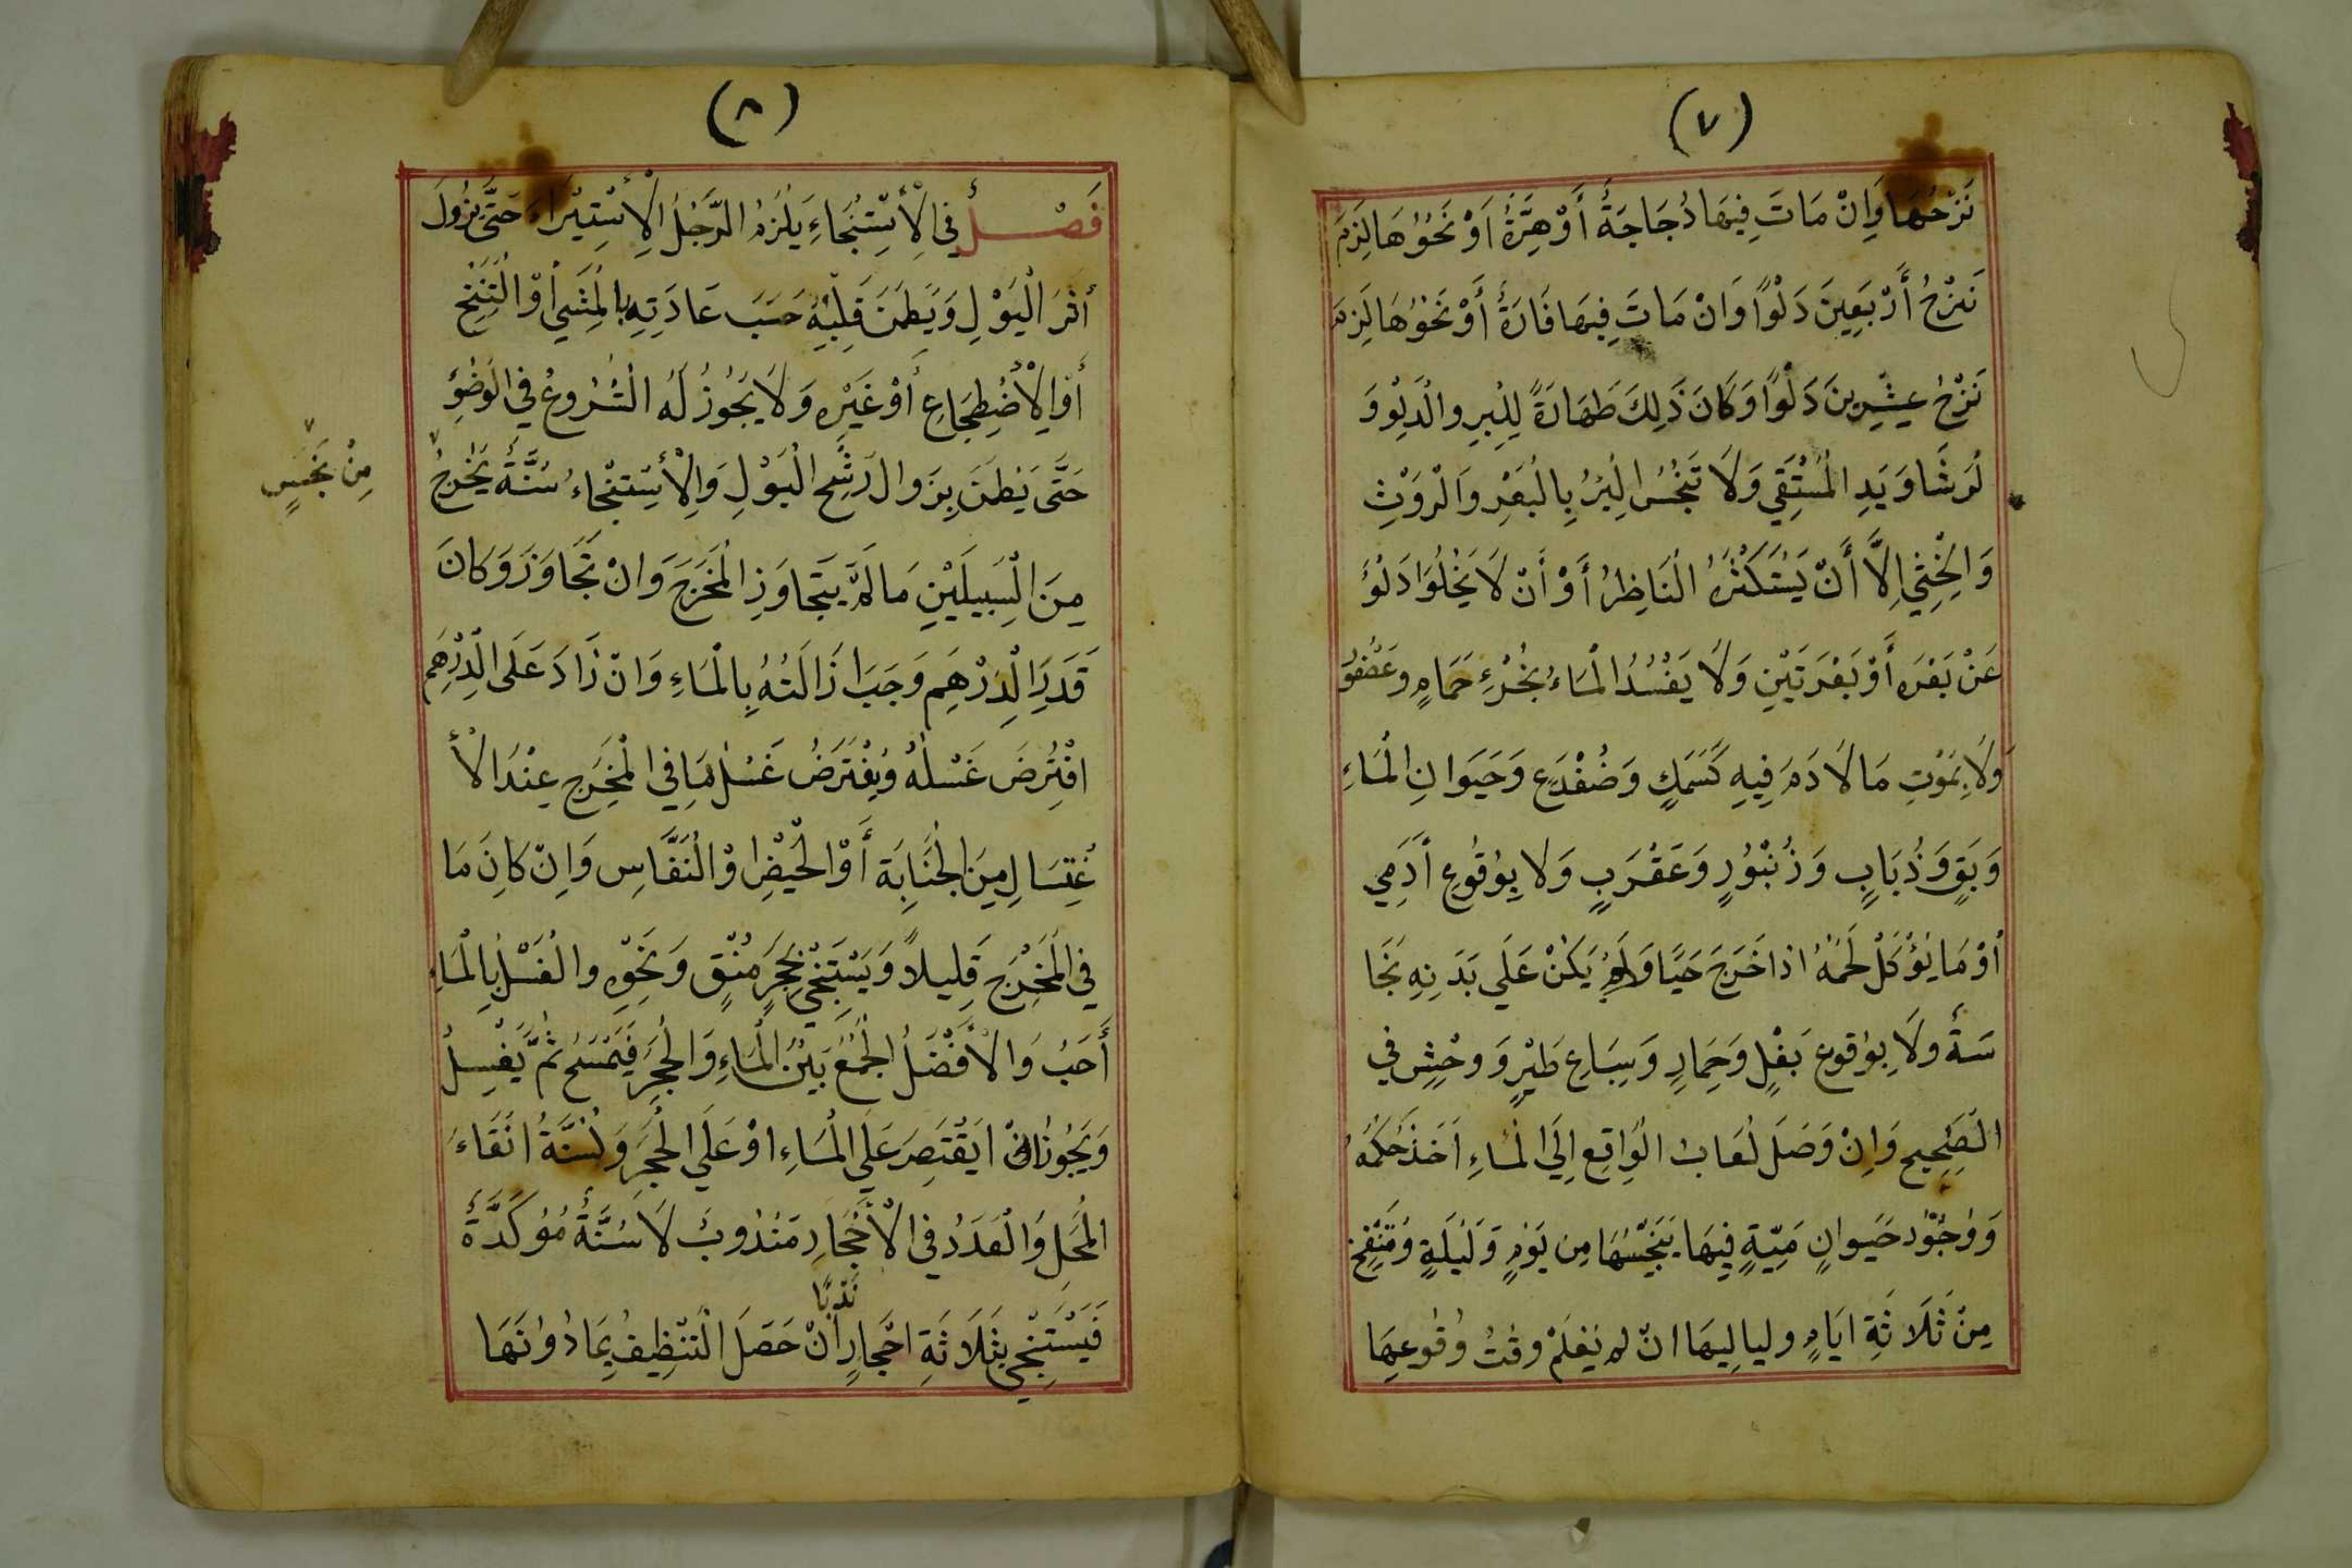 (٧)
نَزْحُهَا وَاِنْ مَاتَ فِيهَا دُجَاجَةٌ أَوْ هِرَّةٌ اَوْ نَحْوُهَا لَزِمَ
نَزْحُ أَرْبَعِينَ دَلْوًا وَانْ مَاتَ فِيهَا فَارَةٌ أَوْ نَحْوُهَا لَزِمَ
نَزْحُ عِشْرِينَ دَلْوًا وَكَانَ ذَلِكَ طَهَارَةً لِلْبِيرِ والْدَلْوِ وَ
لْرَشَا وَيَدِ الْمُسْتَقِي وَلَا تَنْجُسُ الْبِيرُ بِالْبَعْرِ وَالْرَوْثِ
وَالْخِثِي اِلَّا أَنْ يَسْتَكْثِرَهُ الْنَاظِرُ أَوْ أَنْ لَا يَخْلُوَا دَلْوٌ
عَنْ بَعْرَه أَوْ بَعْرَتَيْنِ وَلَا يَفْسُدُ الْمَاءُ بِخُرْءِ حَمَامٍ وعَصْفُو
وَلَا بِمَوْتِ مَا لَا دَمَ فِيهِ كَسَمَكٍ وَضُفْدَعٍ وَحَيَوانِ الْمَاءِ
وَبَقٍ وَذُبَابٍ وَزُنْبُورٍ وَعَقْرَبٍ وَلَا بِوُقُوعِ اَدَمِي
أوْ مَا يُؤْكَلُ لَحْمُهُ اذا خَرَجَ حَيًا وَلَمْ يَكُنْ عَلَي بَدَنِهِ نَجَا
سَةٌ ولَا بِوُقوعِ بَغْلٍ وَحِمَارٍ وَسِبَاعِ طَيْرٍ وَ وحْشٍ في
الْصَحِيحِ وَاِنْ وَصَلَ لُعَابُ الْوَاقِعِ اِلَيَ الْمَاءِ اَخَذَ حُكْمَهُ
وَوُجُوْد حَيَوانٍ مَيّتٍةٍ فِيهَا يُنَجِّسُهَا مِن يَوْمٍ وَلَيْلَةٍ وَمُنْتَفِخٍ
مِنْ ثَلَاثَةِ ايَامٍ ولياليهَا انْ لم يُعْلَمْ وقْتُ وُقُوعِهَا
(٨)
فَصْلٌ في الْأسْتِنْجَاءِ يَلْزَمُ الرَّجُلَ الْاِسْتِبْرَاءَ حَتَّى يَزُولَ
أثَرَ الْبَوْلِ وَيَطْمَنَّ قَلْبُهُ حَسَبَ عَادَتِهِ بالْمَشَيْ أوْ الْتَنَخْنُحِ
أوْ الْاضْطِجَاعِ أوْ غَيْرِه وَلَا يَجُوزُ لَهُ الْشُرُوعُ في الْوضُوءِ
حَتَّى يَطْمَنَّ بِزَوالِ رَشْحِ الْبَوْلِ وَالْأسْتِنْجاءُ سُنَّةٌ
مِنْ نَجْسٍ يَخْرُجُ
مِنَ الْسَبِيلَيْنِ مَا لَمْ يَتَجاوَزِ الْمَخْرَجَ وَانْ تَجَاوَزَ وَكانَ
قَدَرَ الْدِرْهِمِ وَجَبَ ازَالَتُهُ بِالْمَاءِ وَانْ زَادَ عَلَى الْدِرْهِمِ
افْتُرِضَ غَسْلُهُ وَيُفْتَرَضُ غَسْلُ مَا فِي الْمَخْرَجِ عِنْدَ الْأ
غْتِسَالِ مِنَ الْجَنَابَةِ أَوْ الْحَيْضِ اوْ الْنَفَّاسِ وَاِنْ كَانَ مَا
في الْمَخْرَجِ قَلِيلاً وَيَسْتَنْجِي بِحَجَرٍ مُنْقٍ وَنَحْوِهِ والْغَسْلُ بِالْمَاءِ
أَحَبُ وَالْأَفْضَلُ الْجَمْعُ بَيْنَ الْمَاءِ وَالْحَجَرِ فَيَمْسَحُ ثُمَّ يَغْسِلُ
وَيَجُوزُ انْ ايَقْتَصِرَ عَلَي الْمَاءِ اوْ عَلَي الْحَجَرِ وَلْسُنَّةُ انْقَاءَ
الْمَحَلِ وَالْعَدَدُ في الْأحْجَارِ مَنْدُوبٌ لَا سُنَّةٌ مُؤكَدَّةٌ
فَيَسْتَنْجِي بِثَلَاثَةِ احْجَارٍ نَدْبًا انْ حَصَلَ الْتَنْظِيفُ بِمَا دُوْنَهَا